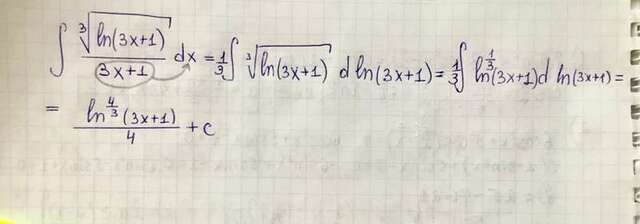 ∫ ∛(ln(3x+1))/(3x+1) dx = 1/3 ∫ ∛(ln(3x+1)) d ln(3x+1) = 1/3 ∫ ln^(1/3)(3x+1) d ln(3x+1) =
= ln^(4/3)(3x+1)/4 + C